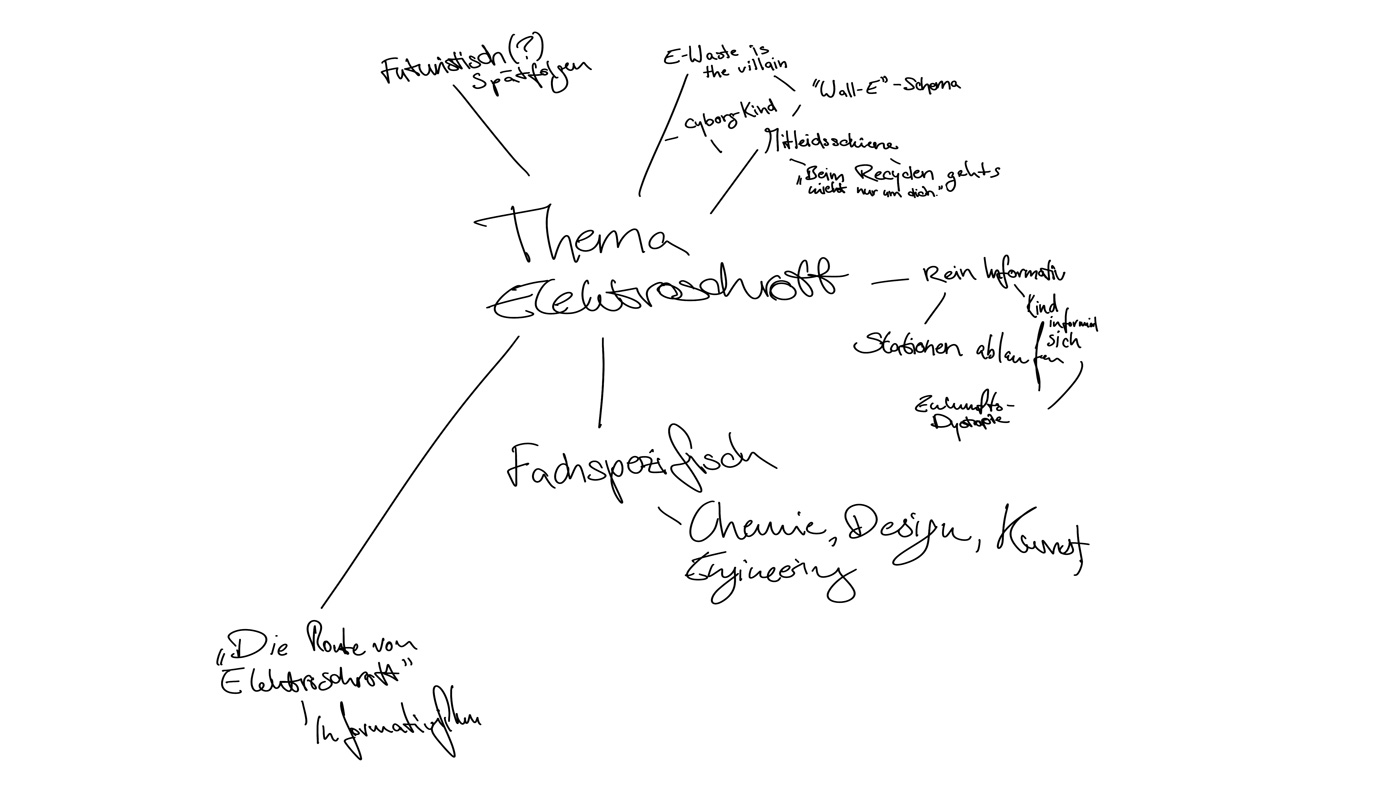 Futuristisch (?)
Spätfolgen
E-Waste is
the villain
"Wall-E"-Schema
Cyborg-Kind
Mitleidsschiene
„Beim Recyclen gehts
nicht nur um dich."
Thema
Elektroschrott
Rein Informativ
Kind
informiert
sich
Stationen ablaufen
Zukunfts-
Dystopie
Fachspezifisch
Chemie, Design, Kunst,
Engineering
„Die Route von
Elektroschrott"
Informativfilm